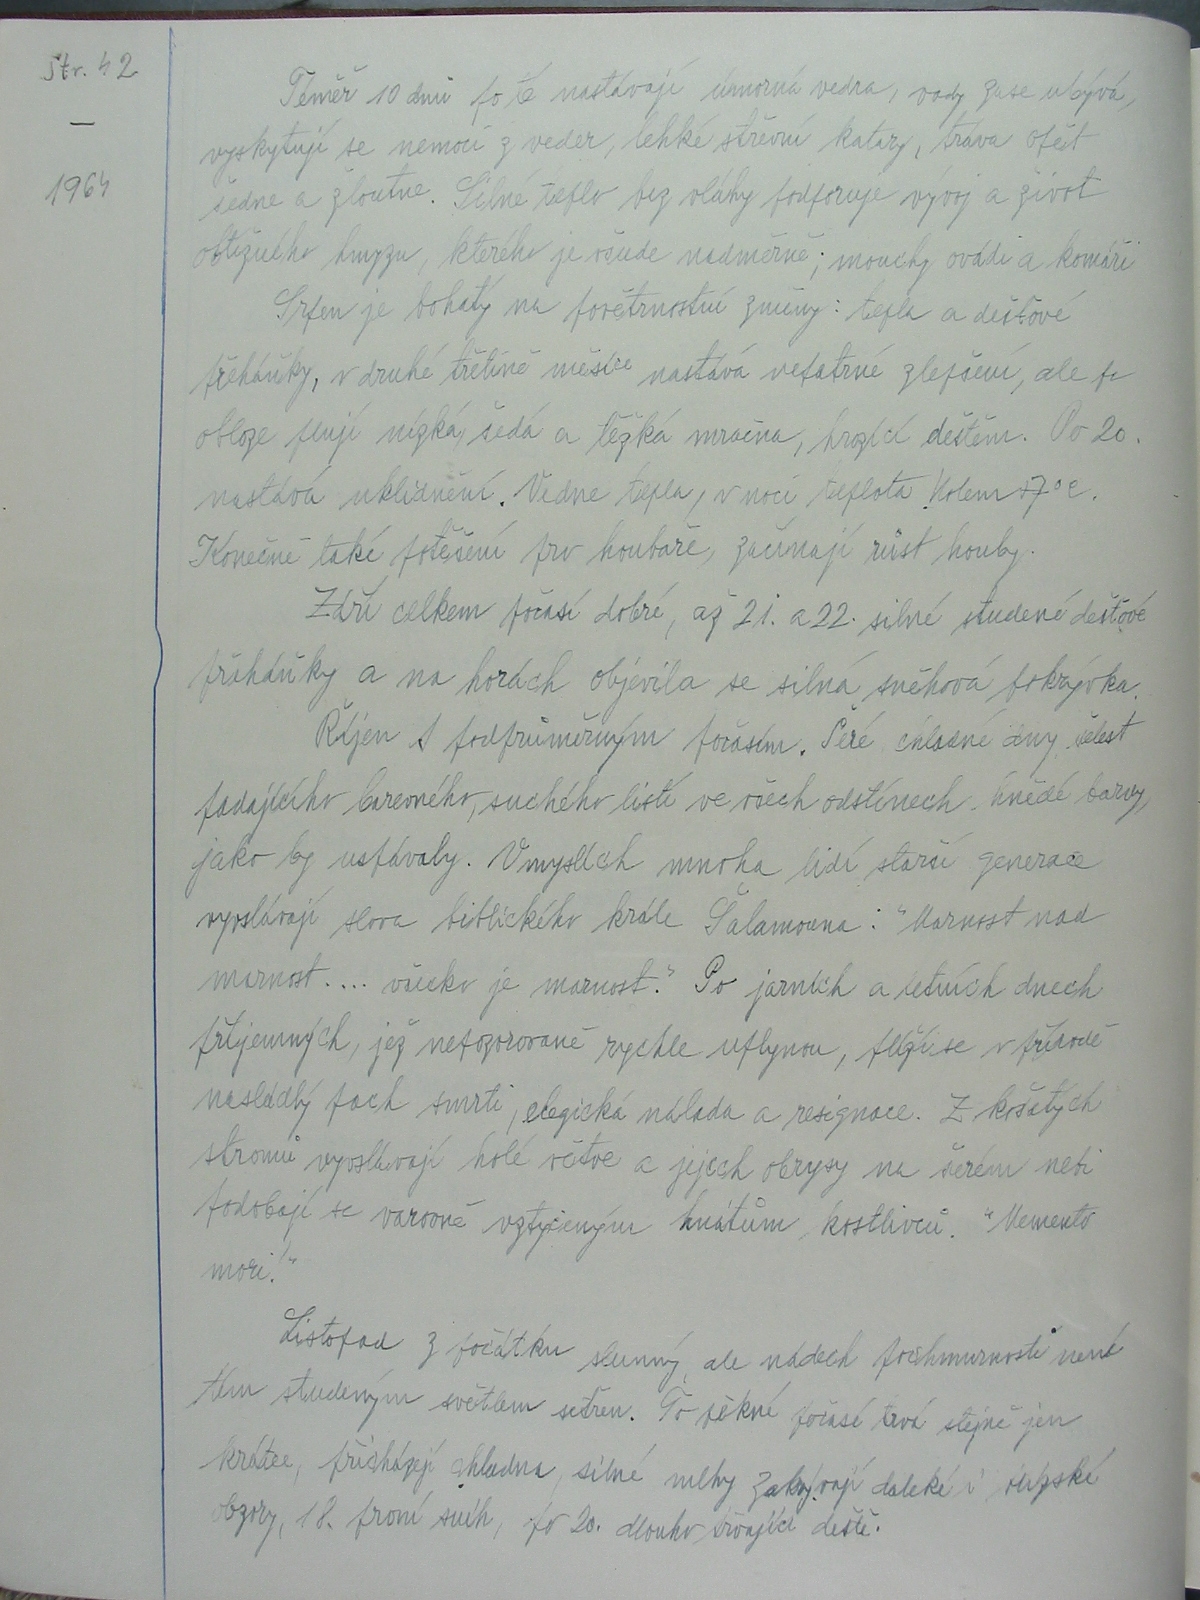 Str. 42
—
1964
Téměř 10 dnů po té nastávají úmorná vedra, vody zase ubývá,
vyskytují se nemoci z veder, lehké střevní katary, tráva opět
šedne a žloutne. Silné teplo bez vláhy podporuje vývoj a život
obtížného hmyzu, kterého je všude nadměrně; mouchy ovádi a komáři
Srpen je bohatý na povětrnostní změny: tepla a dešťové
přeháňky, v druhé třetině měsíce nastává nepatrné zlepšení, ale po
obloze plují nízká, šedá a těžká mračna, hrozící deštěm. Po 20.
nastává uklidnění. Ve dne tepla, v noci teplota kolem +7°C.
Konečně také potěšení pro houbaře, začínají růst houby.
Září celkem počasí dobré, až 21. a 22. silné studené dešťové
přeháňky a na horách objevila se silná sněhová pokrývka.
Říjen s podprůměrným počasím. Šeré chladné dny, šelest
padajícího barevného, suchého listí ve všech odstínech hnědé barvy,
jako by uspávaly. V myslích mnoha lidí starší generace
vyvstávají slova biblického krále Šalamouna: "Marnost nad
marnost.... všecko je marnost." Po jarních a letních dnech
příjemných, jež nepozorovaně rychle uplynou, plíží se v přírodě
nasládlý pach smrti, elegická nálada a resignace. Z košatých
stromů vyvstávají holé větve a jejich obrysy na šerém nebi
podobají se varovně vztyčeným hnátům kostlivců. "Memento
mori!"
Listopad z počátku slunný, ale nádech pochmurnosti není
tím studeným světlem setřen. To pěkné počasí trvá stejně jen
krátce, přicházejí chladna, silné mlhy zakrývají daleké i blízské
obzory, 18. první sníh, po 20. dlouho trvající deště.